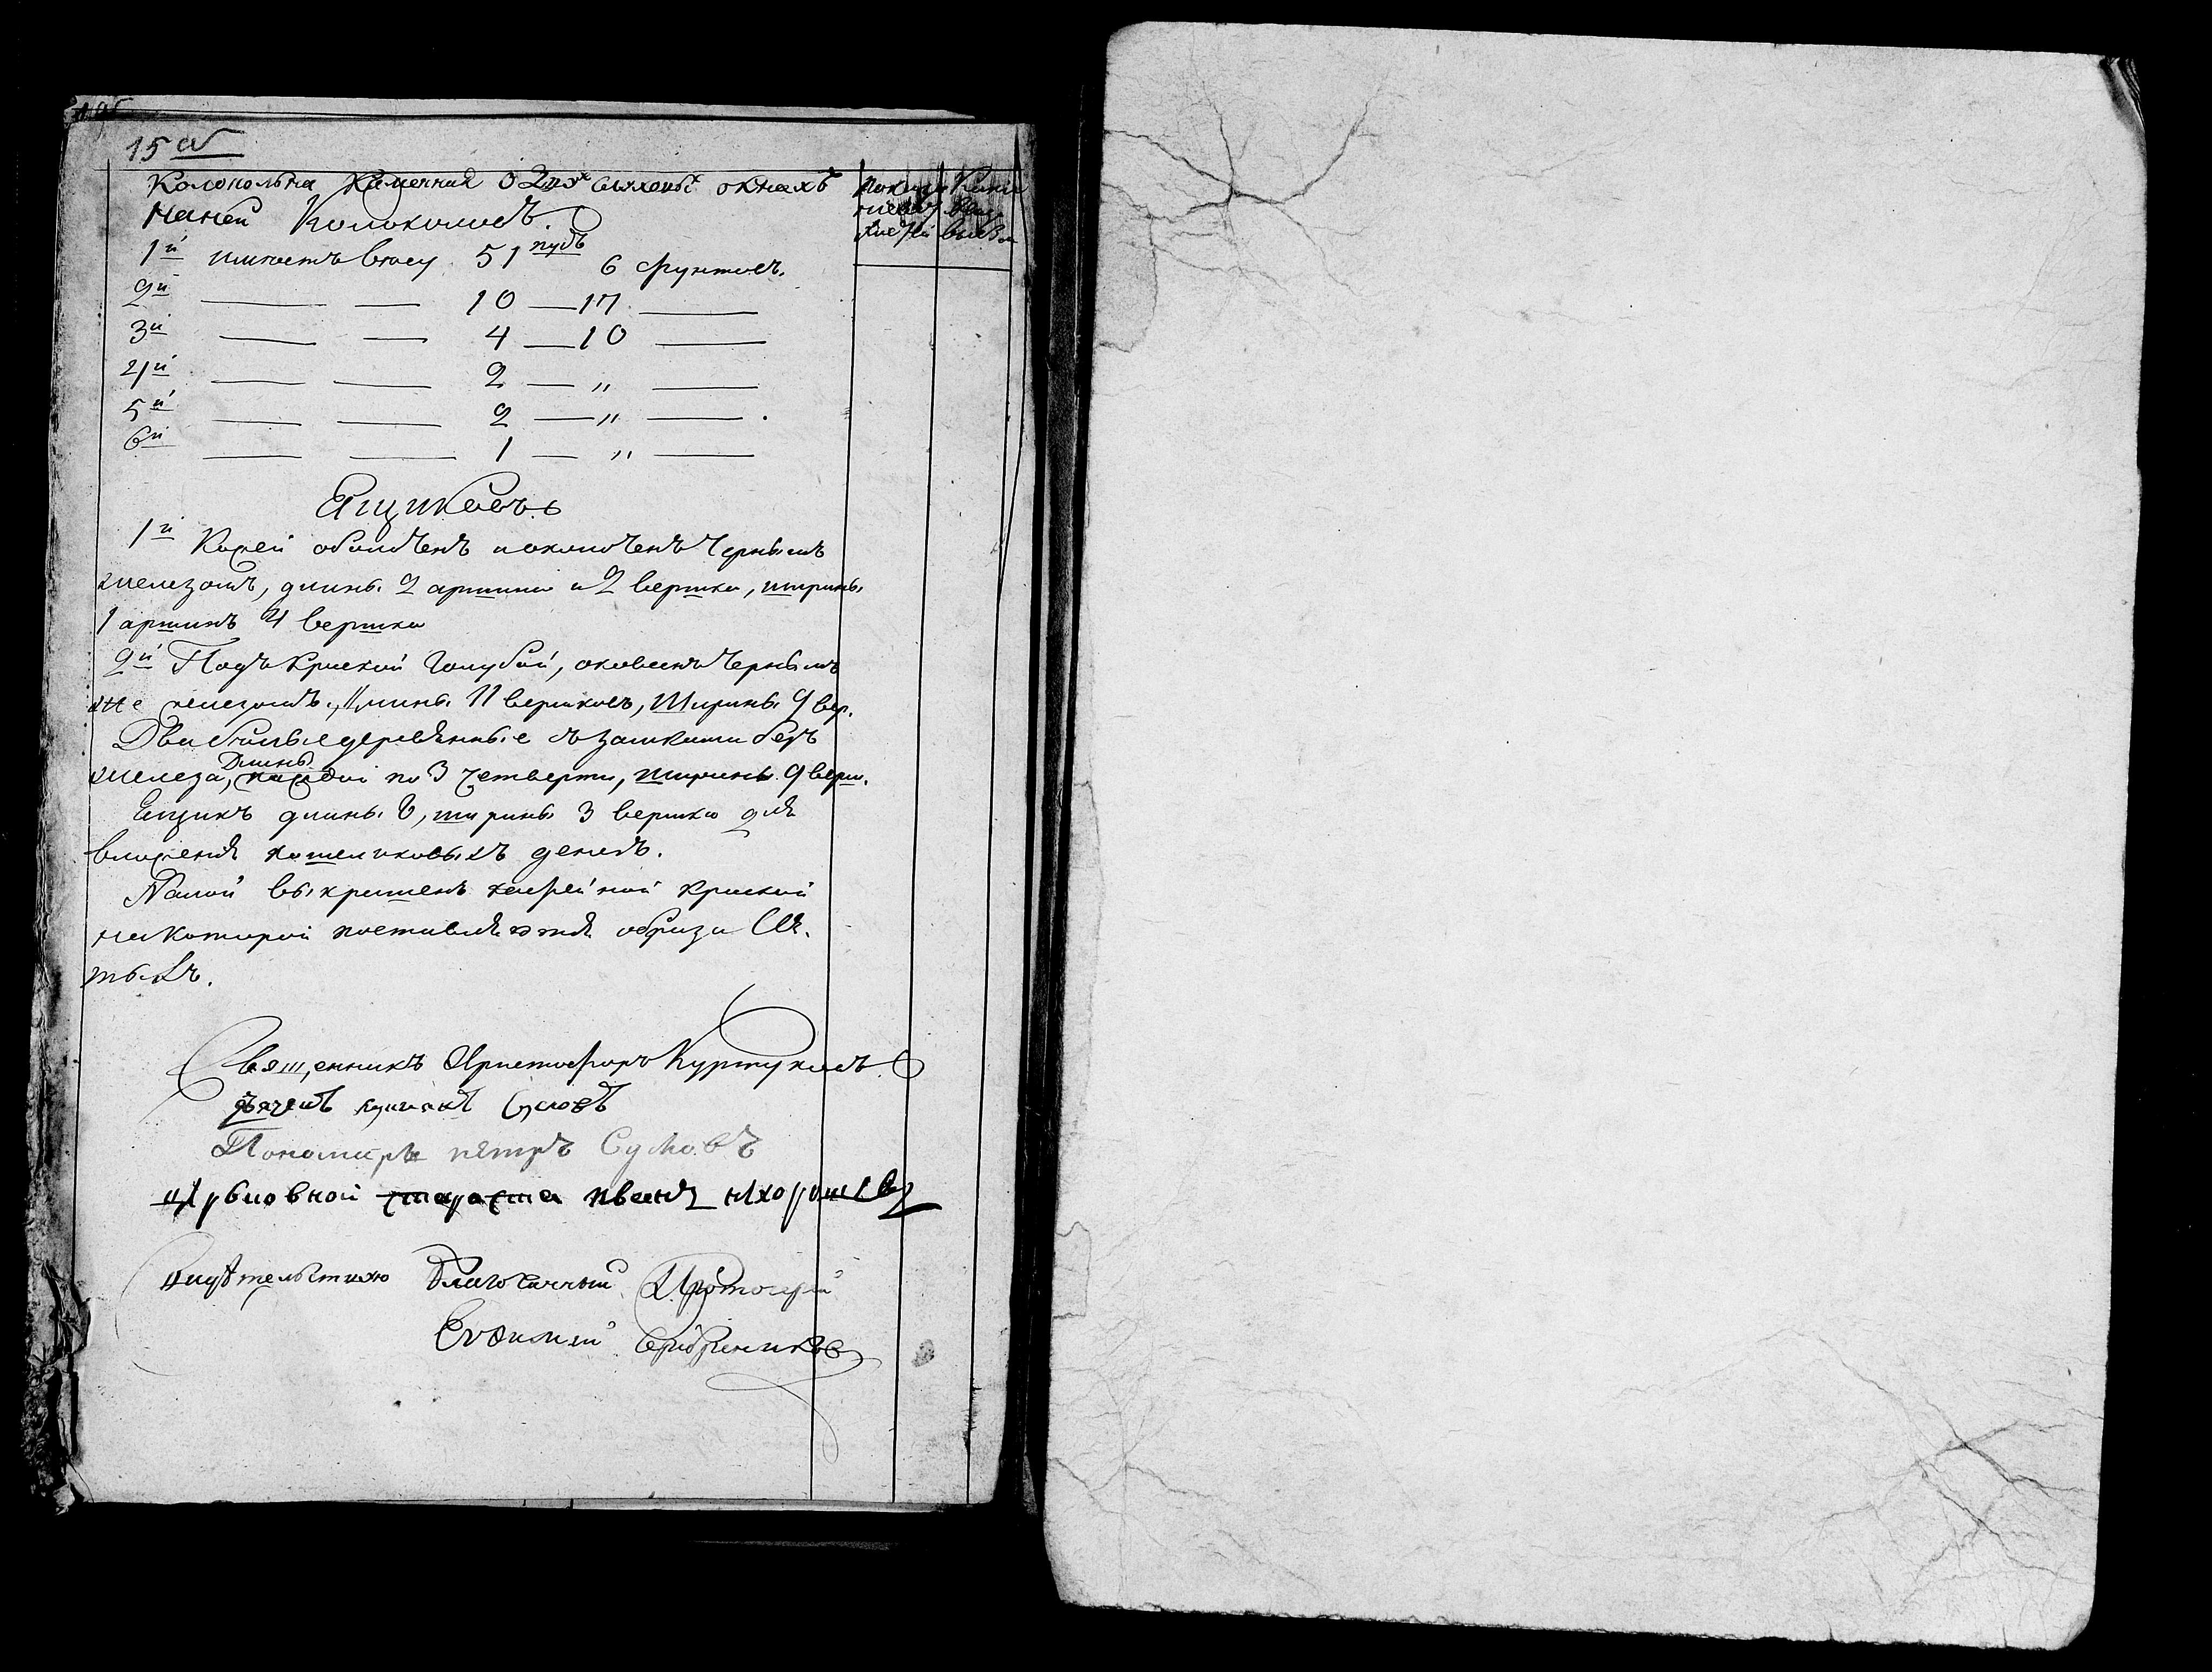 15
Колокольна Каменная о 2хъ окнахъ
На ней Колоколовъ.
1й имеетъ весу 51 пудъ 6 фунтовъ.
2й — — 10 — 17 —
3й — — 4 — 10 —
4й — — 2 — „ —
5й — — 2 — „ — .
6й — — 1 — „ —
Ящиковъ
1й Кожей оболоченъ и околоченъ Чернымъ
железомъ, длины 2 аршина и 2 вершка, ширины
1 аршинъ 4 вершка
2й Подъ Краской Голубой, окованъ Чернымъ
же железомъ, длины 11 вершковъ, Ширины 9 вер.
Два белые деревянные съ замками безъ
железа, Длины каждой по 3 четверти, ширины 9 верш.
Ещикъ длины 6, ширины 3 вершка для
вложения кошельковыхъ денегъ.
Налой выкрашенъ кофейной краской
на Которой поставляются образа Свя-
тыхъ.
Священникъ Христофоръ Куртуковъ
дьячекъ Сусловъ
Пономарь петръ Сусловъ
церковной староста
Свидетельствую Благочинный Протоиерей
Евфимий Серебрениковъ